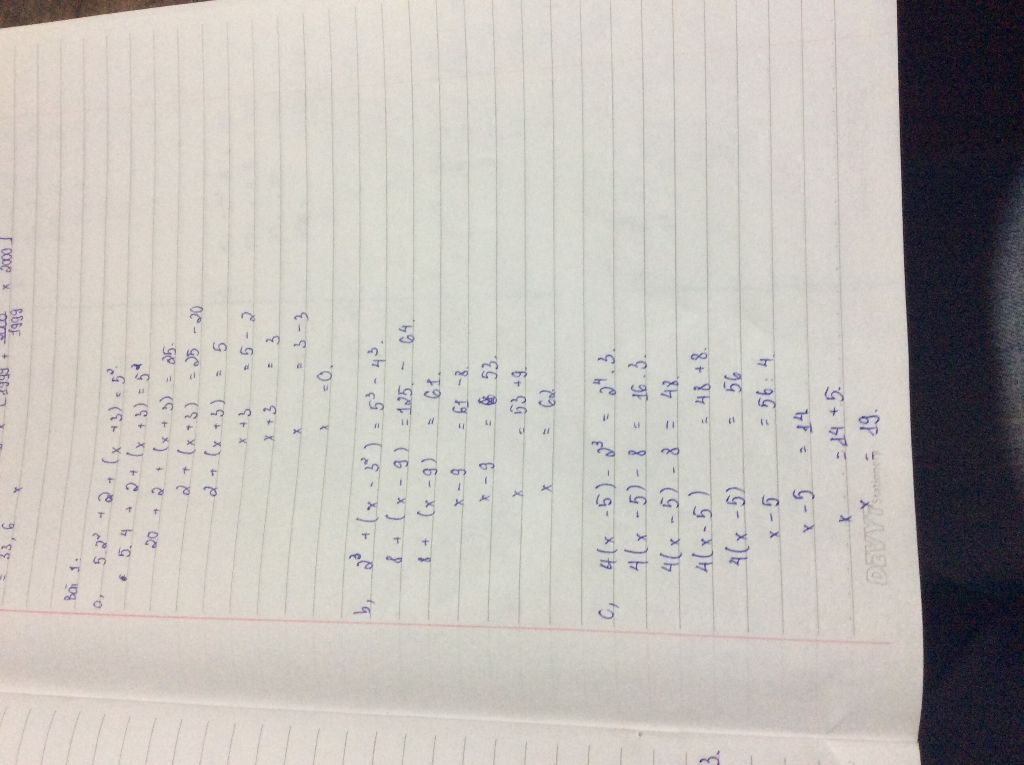 = 33, 6 x
x 2000 ]
1999
Bài 1.
a, 5.2² + 2 + ( x + 3 ) = 5².
5. 4 + 2 + ( x + 3 ) = 5²
20 + 2 + ( x + 3 ) = 25.
2 + ( x + 3 ) = 25 - 20
2 + ( x + 3 ) = 5
x + 3 = 5 - 2
x + 3 = 3
x = 3 - 3
x = 0.
b, 2³ + ( x - 3² ) = 5³ - 4³.
8 + ( x - 9 ) = 125 - 64.
8 + ( x - 9 ) = 61.
x - 9 = 61 - 8
x - 9 = 53.
x = 53 + 9.
x = 62
c, 4( x - 5 ) - 2³ = 2⁴. 3.
4( x - 5 ) - 8 = 16. 3.
4( x - 5 ) - 8 = 48.
4( x - 5 ) = 48 + 8.
4( x - 5 ) = 56
x - 5 = 56 : 4
x - 5 = 14
x = 14 + 5.
x = 19.
3.